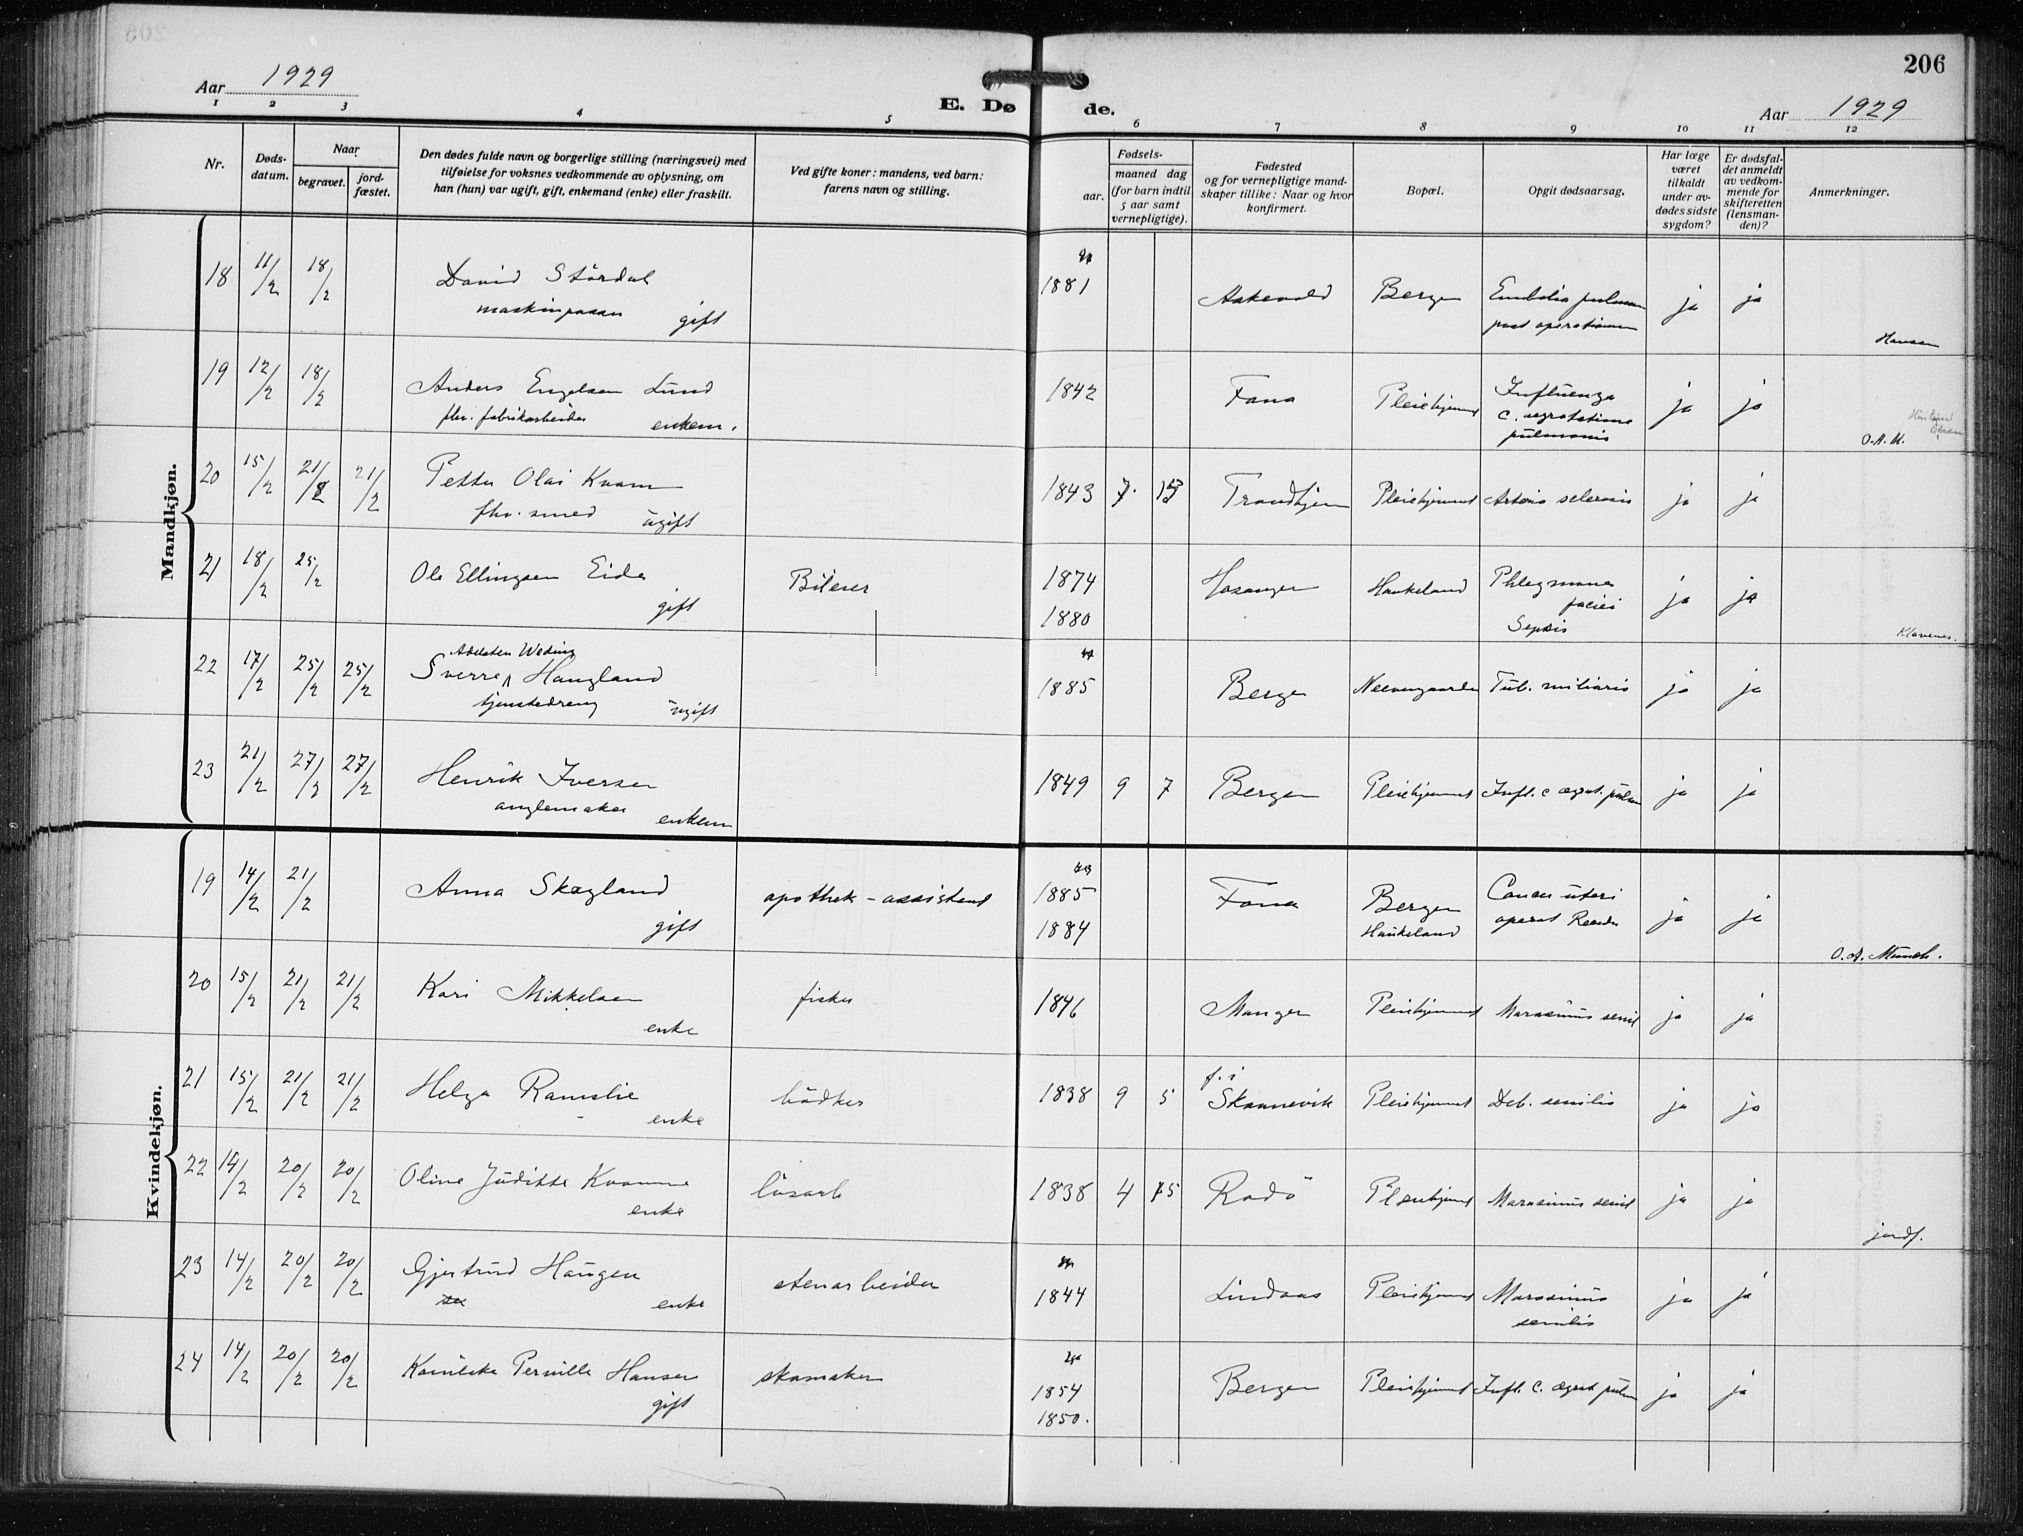 206
Aar 1929
E. Dø de.
Aar 1929
1 2 3 4 5 6 7 8 9 10 11 12
Nr.
Døds-datum.
Naar
begravet.
jord-fæstet.
Den dødes fulde navn og borgerlige stilling (næringsvei) med
tilføielse for voksnes vedkommende av oplysning, om
han (hun) var ugift, gift, enkemand (enke) eller fraskilt.
Ved gifte koner: mandens, ved barn:
farens navn og stilling.
Fødsels-
aar.
maaned dag
(for barn indtil
5 aar samt
vernepligtige).
Fødested
og for vernepligtige mand-
skaper tillike: Naar og hvor
konfirmert.
Bopæl.
Opgit dødsaarsag.
Har læge
været
tilkaldt
under av-
dødes sidste
sygdom?
Er dødsfal-
det anmeldt
av vedkom-
mende for
skifteretten
(lensman-
den)?
Anmerkninger.
Mandkjøn.
18 11/2 18/2 David Stördal 1881 Askevold Bergen Embolia pulmon ja ja
maskinpasser gift post operationem Hansen
19 12/2 18/2 Anders Engelsen Lund 1842 Fana Pleiehjemmet Influenza ja ja
fhv. fabrikarbeider enkem. c. pulmonis O.A.M.
20 15/2 21/2 21/2 Petter Olai Kvam 1843 7. Trondhjem Pleiehjemmet Arterio sclerosis ja ja
fhv. smed ugift
21 18/2 25/2 Ole Ellingsen Eide 1874 Hosanger Haukeland Phlegmone ja ja
gift 1880 faciei
Sepsis Klavenes.
22 17/2 25/2 25/2 Sverre Haugland 1885 Bergen Neevengaarden Tub. miliaris ja ja
tjenstedreng ugift
23 21/2 27/2 27/2 Henrik Iversen 1849 9 7 Bergen Pleiehjemmet Infl. c ægrot. pulm ja ja
anglemaker enkem
Kvindekjøn.
19 14/2 21/2 Anna Skogland apothek-assistent 1885 Fana Bergen Cancer uteri ja ja
gift 1884 Haukeland operat O.A. Munch.
20 15/2 21/2 21/2 Kari Mikkelsen fisker 1846 Manger Pleiehjemmet Marasmus senil ja ja
enke
21 15/2 21/2 21/2 Helga Ramslie bödker 1838 9 5 f. i Skaanevik Pleiehjemmet Deb. senilis ja ja
enke
22 14/2 20/2 20/2 Oline Juditte Kvamme lösarb 1838 4 Rödö Pleiehjemmet Marasmus senil ja ja
enke jordf.
23 14/2 20/2 20/2 Gjertrud Haugen stenarbeider 1844 Lindaas Pleiehjemmet Marasmus ja ja
enke senilis
24 14/2 20/2 20/2 Pernille Hansen skomaker 1854 Bergen Pleiehjemmet Infl. c. ægrot pulm ja ja
gift 1850.